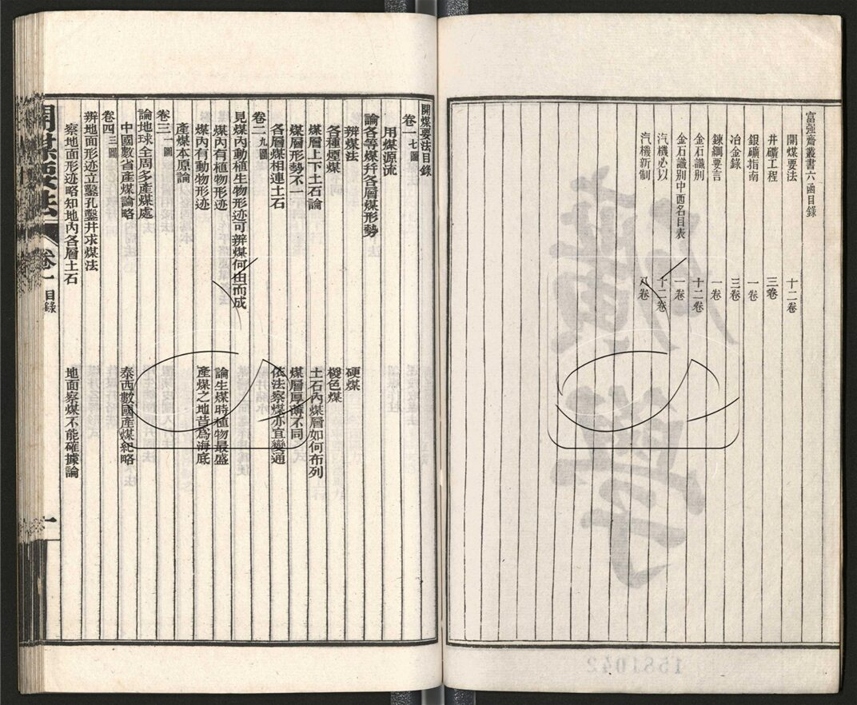 富强齋叢書六函目錄
開煤要法 十二卷
井礦工程 三卷
銀礦指南 一卷
冶金錄 三卷
鍊鋼要言 一卷
金石識別 十二卷
金石識別中西名目表 一卷
汽機必以 十二卷
汽機新制 八卷
開煤要法目錄
卷一 七圖
論各等煤幷各層煤形勢
用煤源流
辨煤法 硬煤
各種煙煤 椶色煤
煤層上下土石論 土石內煤層如何布列
煤層形勢不一 煤層厚薄不同
各層煤相連土石 依法察煤亦宜變通
卷二 九圖
見煤內動植生物形迹可辨煤何由而成
煤內有植物形迹 論生煤時植物最盛
煤內有動物形迹 產煤之地昔爲海底
產煤本原論
卷三 一圖
論地球全周多產煤處
中國數省產煤論略 泰西數國產煤紀略
卷四 三圖
辨地面形迹立鑿孔鑿井求煤法
察地面形迹略知地內各層土石 地面察煤不能確據論
開煤要法 卷一 目錄 一
鑛學
1581042